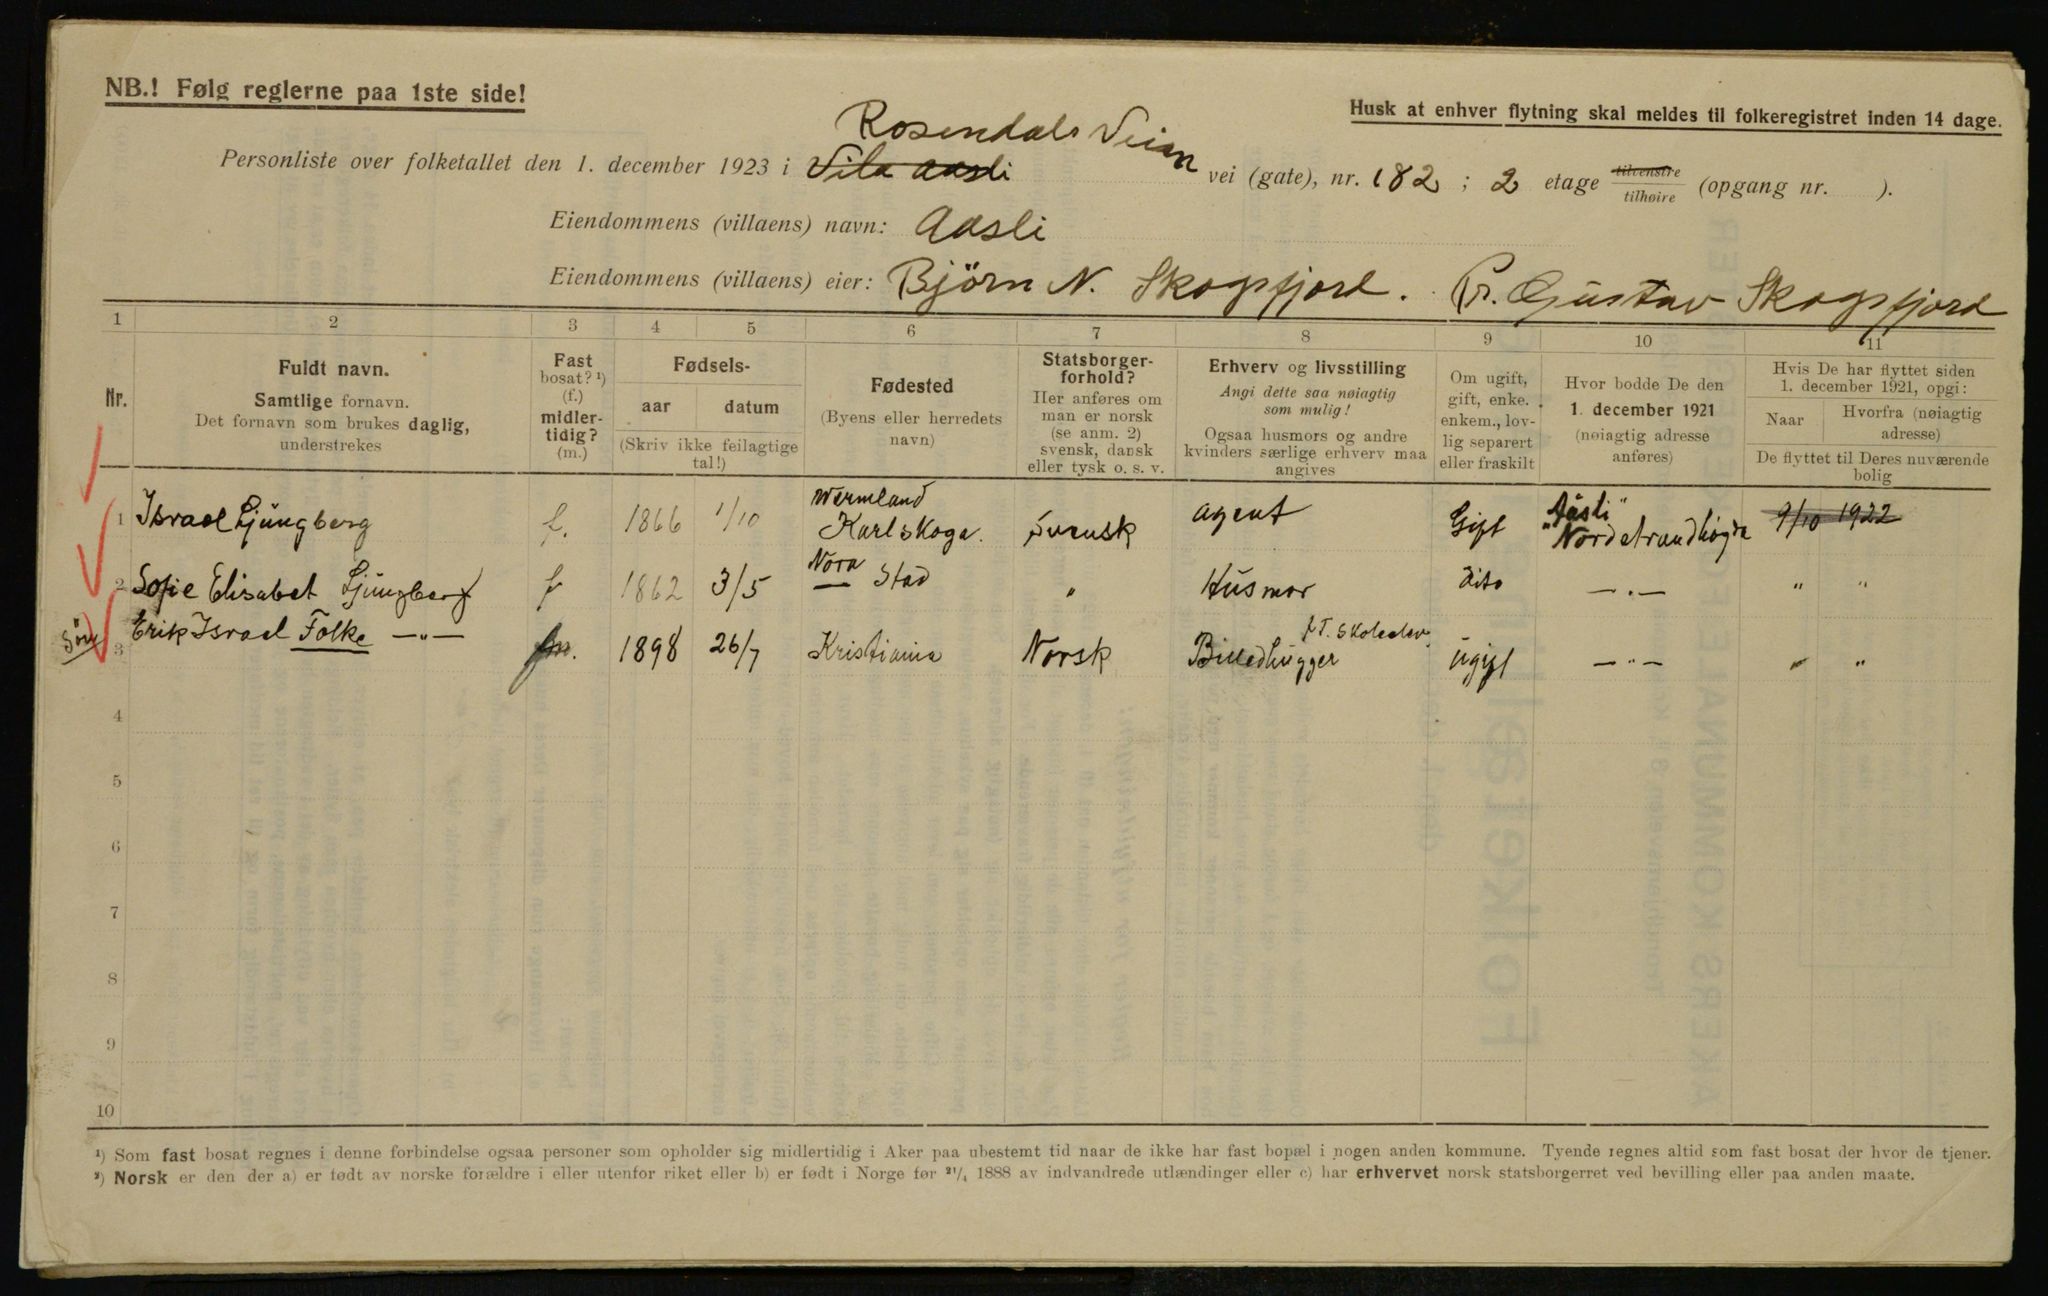 NB.! Følg reglerne paa 1ste side!
Husk at enhver flytning skal meldes til folkeregistret inden 14 dage.
Rosendals Veien
Personliste over folketallet den 1. december 1923 i Vila Aasli vei (gate), nr. 182 ; 2 etage tilvenstre/tilhøire (opgang nr. ).
Eiendommens (villaens) navn: Aasli
Eiendommens (villaens) eier: Björn N. Skogsfjord. Pr. Gustav Skogsfjord
1 2 3 4 5 6 7 8 9 10 11
Nr.
Fuldt navn.
Samtlige fornavn.
Det fornavn som brukes daglig,
understrekes
Fast
bosat? ¹)
(f.)
midler-
tidig?
(m.)
Fødsels-
aar datum
(Skriv ikke feilagtige
tal!)
Fødested
(Byens eller herredets
navn)
Statsborger-
forhold?
Her anføres om
man er norsk
(se anm. 2)
svensk, dansk
eller tysk o. s. v.
Erhverv og livsstilling
Angi dette saa nøiagtig
som mulig!
Ogsaa husmors og andre
kvinders særlige erhverv maa
angives
Om ugift,
gift, enke.
enkem., lov-
lig separert
eller fraskilt
Hvor bodde De den
1. december 1921
(nøiagtig adresse
anføres)
Hvis De har flyttet siden
1. december 1921, opgi:
Naar Hvorfra (nøiagtig
adresse)
De flyttet til Deres nuværende
bolig
1 Israel Ljüngberg f. 1866 1/10 Wermland Karlskoga. Svensk agent Gift "Aasli" Nordstrandhøgda 9/10 1922
2 Sofie Elisabet Ljüngberg f 1862 3/5 Nora — Stad " Husmor dito —„— " "
Sön 3 Erik Israel Folke —„— fm. 1898 26/7 Kristiania Norsk Billedhugger f.T. Skoleelev ugift —„— " "
4
5
6
7
8
9
10
¹) Som fast bosat regnes i denne forbindelse ogsaa personer som opholder sig midlertidig i Aker paa ubestemt tid naar de ikke har fast bopæl i nogen anden kommune. Tyende regnes altid som fast bosat der hvor de tjener.
²) Norsk er den der a) er født av norske forældre i eller utenfor riket eller b) er født i Norge før ²¹/₄ 1888 av indvandrede utlændinger eller c) har erhvervet norsk statsborgerret ved bevilling eller paa anden maate.